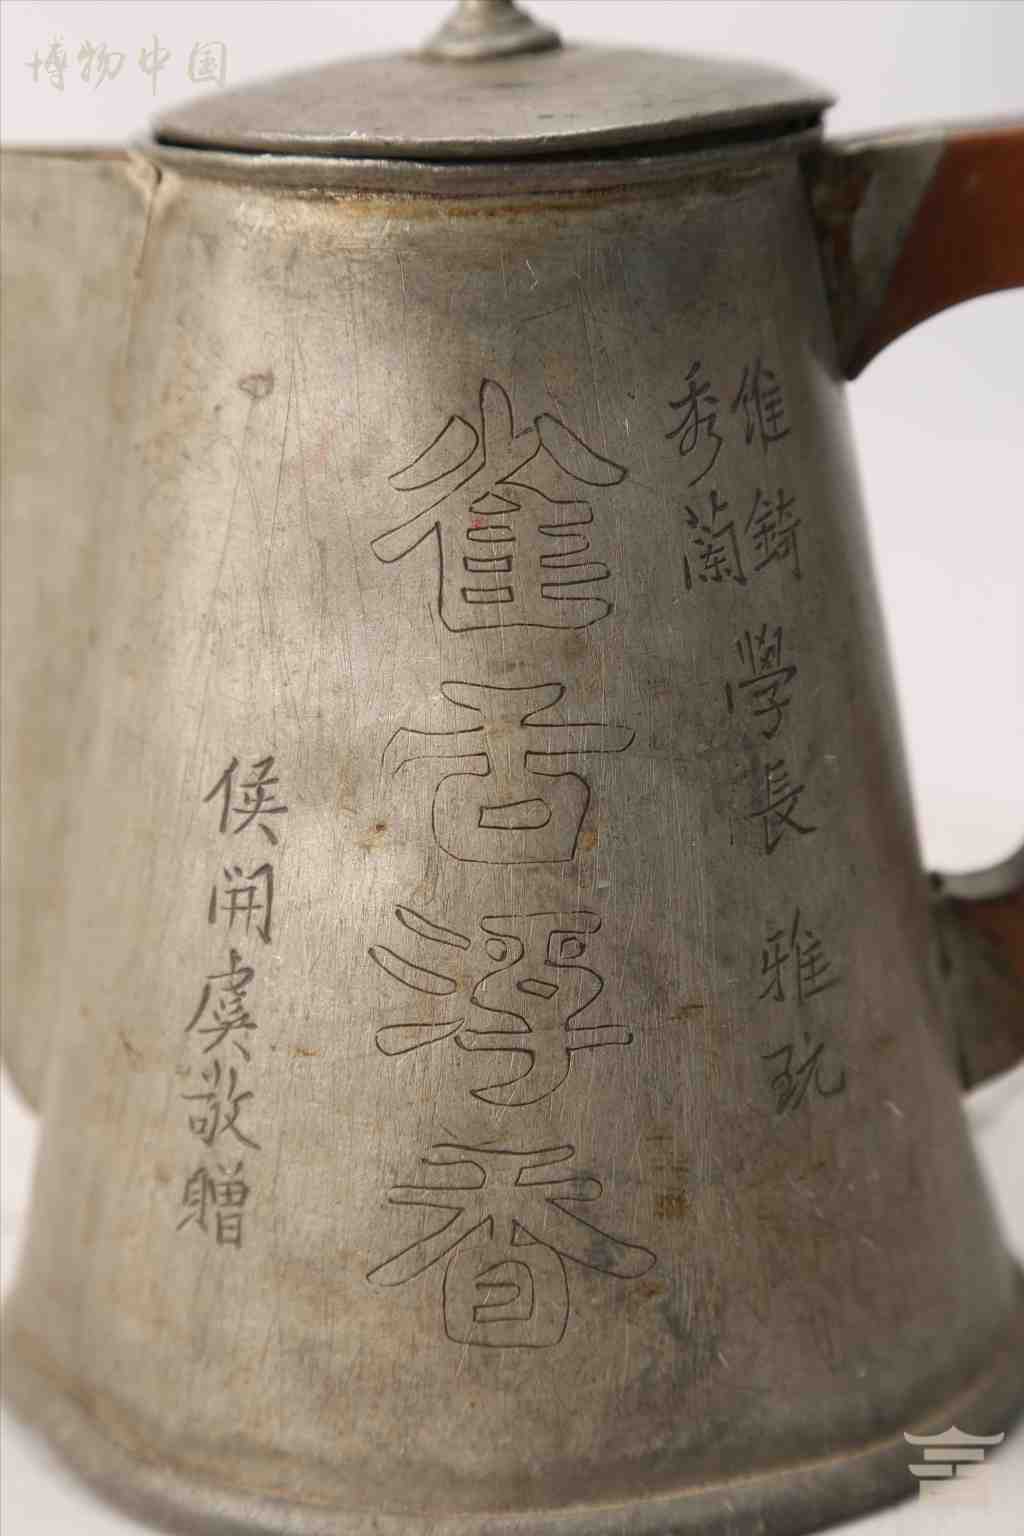 博物中国
維錡
秀蘭
學長 雅玩
雀舌浮香
侯開虞敬贈